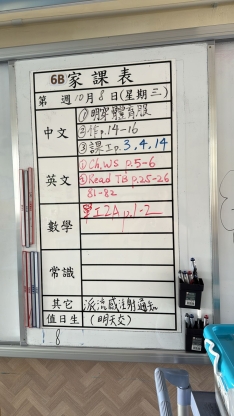 6B 家課表
第 週 10月8日(星期三)
中文
①明穿體育服
② p.14-16
③課工p.3,4,14
英文
①Ch.WS p.5-6
②Read TB p.25-26
81-82
數學
工2A p.1-2
常識
其它 派流感注射通知
值日生 (明天交)
8